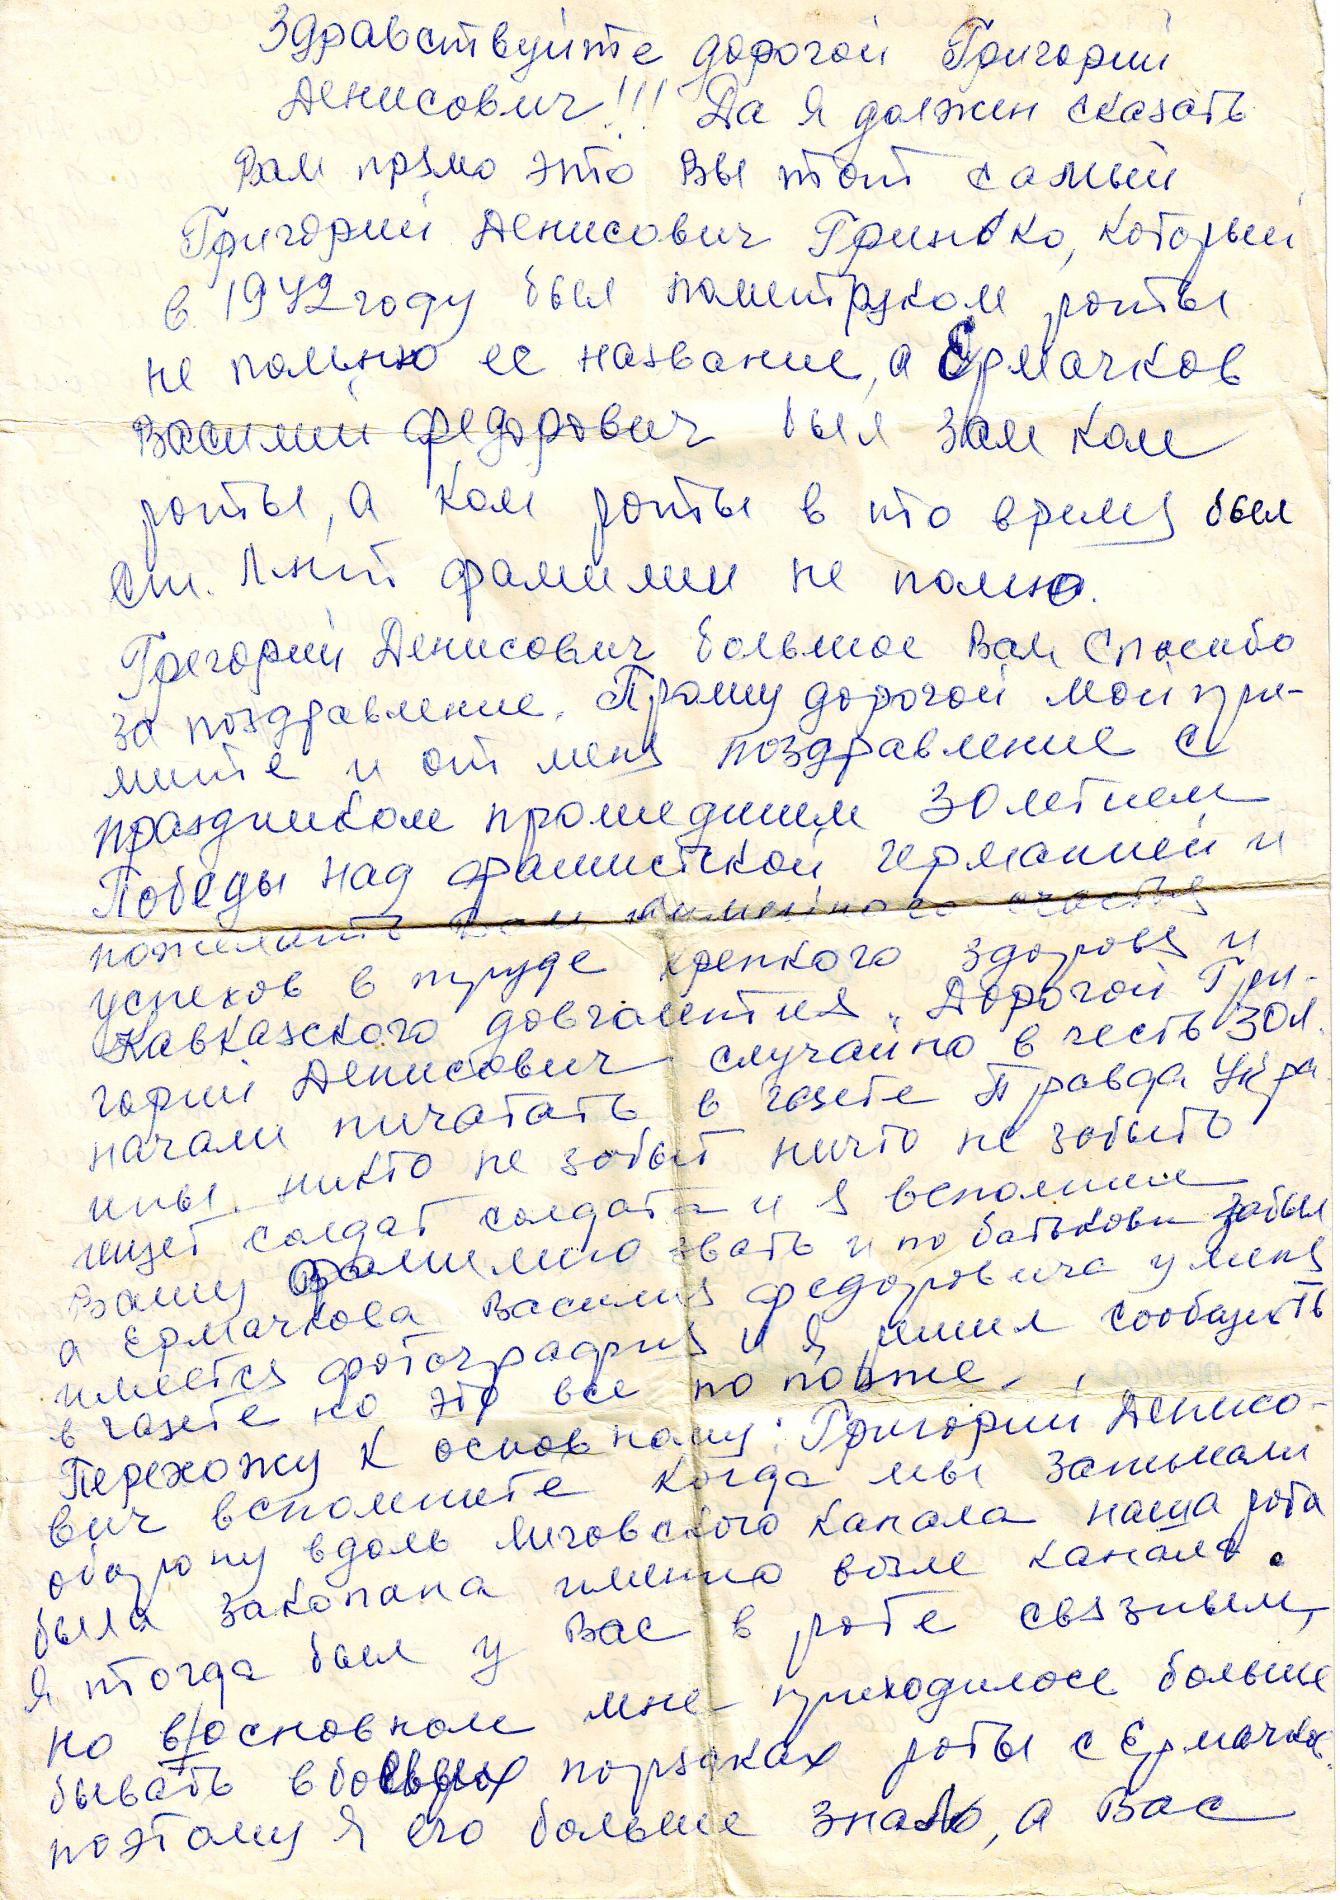 Здравствуйте дорогой Григорий
Денисович!!! Да я должен сказать
Вам прямо это Вы тот самый
Григорий Денисович Гринько, который
в 1942 году был политруком роты
не помьню ее название, а Ермачков
Василий Федорович был зам ком
роты, а ком роты в то время был
Ст. Лнит фамилии не помню.
Григорий Денисович большое Вам Спасибо
за поздравление. Прошу дорогой мой при-
мите и от меня поздравление с
праздником прошедшим 30 летием
Победы над фашистской германией и
пожелать Вам счастья
успехов в труде крепкого здоровя и
Кавказского довголетия. Дорогой Гри-
горий Денисович случайно в честь 30 л.
начали пичатать в газете Правда Укра
ины. никто не забыт ничто не забыто
ищет солдат солдата и я вспомнил
Вашу Фамилию звать и по батькови забыл
а Ермачкова Василия Федоровича у меня
имеется фотография и я решил сообщить
в газете но это все по позже.
Перехожу к основному: Григорий Денисо-
вич вспомните когда мы занимали
оборону вдоль Лиговского канала наша рота
была закопана именно возле канала.
Я тогда был у Вас в роте связным,
но в основном мне приходилосе больше
бывать в боевых порядках роты с Ермачко.
поэтому я его больше знаю, а Вас